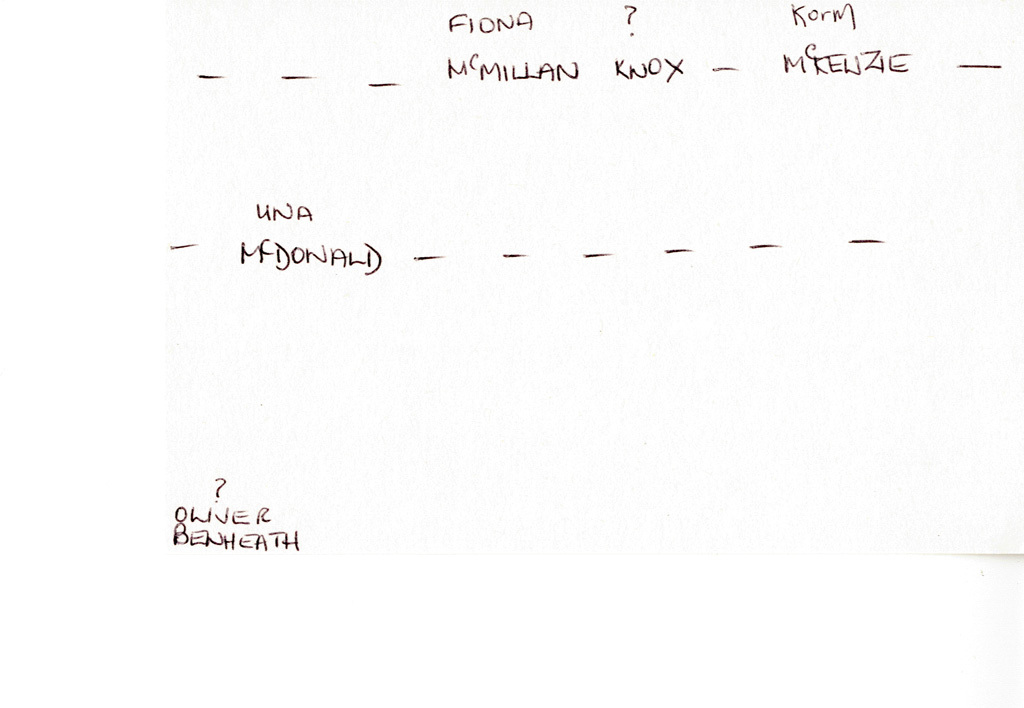 FIONA ? Korm
— — — McMILLAN KNOX — McKENZIE —
UNA
— McDONALD — — — — — —
?
OLIVER
BENHEATH